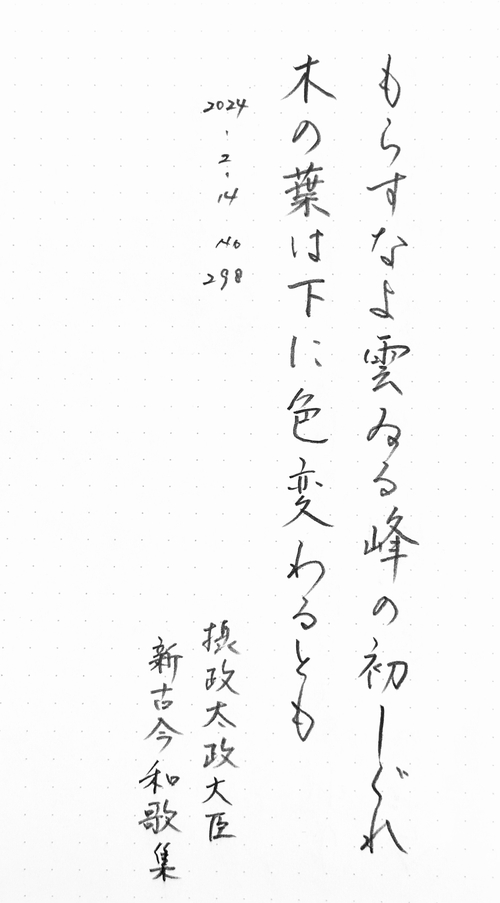 もらすなよ雲ゐる峰の初しぐれ
木の葉は下に色変わるとも
2024.2.14 No298
摂政太政大臣
新古今和歌集